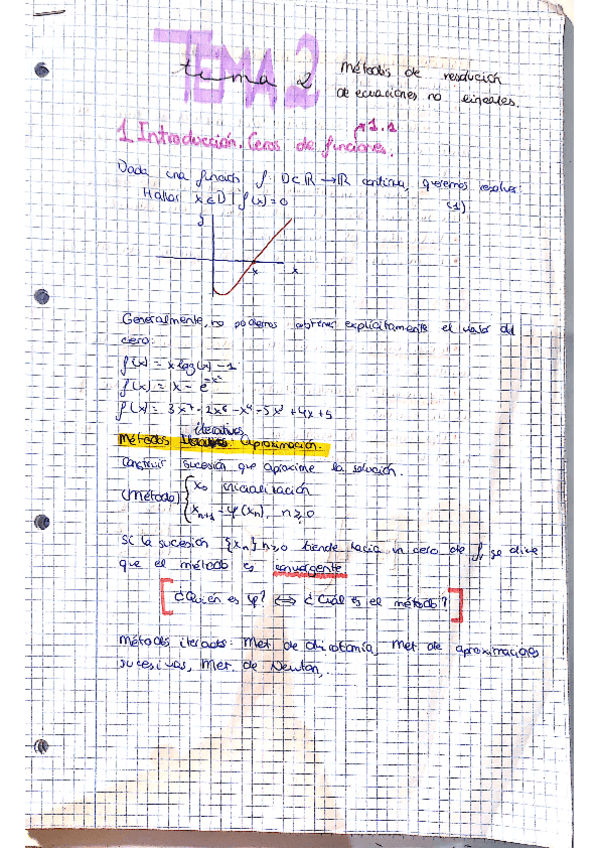 TEMA 2
tema 2
métodos de resolución
de ecuaciones no lineales.
1.1
1 Introducción. Ceros de funciones.
Dada una función f: D⊂ℝ → ℝ continua, queremos resolver:
Hallar x∈D | f(x)=0 (1)
y
x x
Generalmente, no podemos obtener explícitamente el valor del
cero:
f(x) = x log(x) - 1
f(x) = x - e^{-x²}
f(x) = 3x⁷ - 2x⁶ - x⁴ - 5x³ + 4x + 5
iterativos
métodos : aproximación.
Construir sucesión que aproxime la solución.
(método) { x₀ inicialización
x_{n+1} = φ(x_n), n≥0
Si la sucesión {x_n} n≥0 tiende hacia un cero de f, se dice
que el método es convergente
[¿Quién es φ? ⟺ ¿Cuál es el método?]
métodos iterados: Met de dicotomía, Met de aproximaciones
sucesivas, Met. de Newton,.